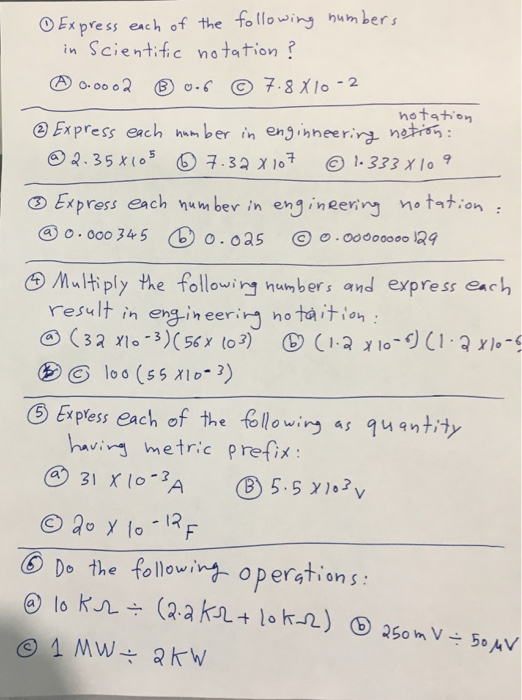 ① Express each of the following numbers
in Scientific notation?
Ⓐ 0.0002 Ⓑ 0.6 Ⓒ 7.8 X 10 -2
notation
② Express each number in enginneering notion:
ⓐ 2.35 x 10⁵ ⓑ 7.32 x 10⁷ ⓒ 1.333 x 10⁹
③ Express each number in engineering notation:
ⓐ 0.000345 ⓑ 0.025 ⓒ 0.00000000129
④ Multiply the following numbers and express each
result in engineering notaition:
ⓐ (32 x10-3)(56x 103) ⓑ (1.2 x 10-6)(1.2 x10-6
ⓒ 100(55 x10-3)
⑤ Express each of the following as quantity
having metric prefix:
ⓐ 31 X 10-3 A Ⓑ 5.5 x103 V
ⓒ 20 x 10-12 F
⑥ Do the following operations:
ⓐ 10 KΩ ÷ (2.2KΩ + 10KΩ) ⓑ 250mV ÷ 50μV
ⓒ 1 MW ÷ 2KW